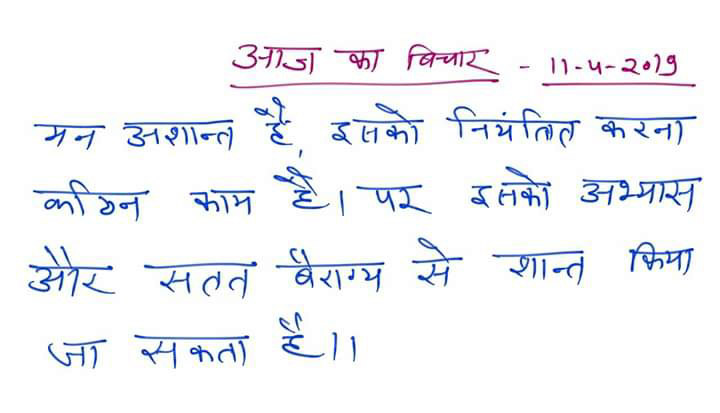 आज का विचार - 11-4-2019
मन अशान्त है, इसको नियंत्रित करना
कठिन काम है। पर इसको अभ्यास
और सतत वैराग्य से शान्त किया
जा सकता है।।